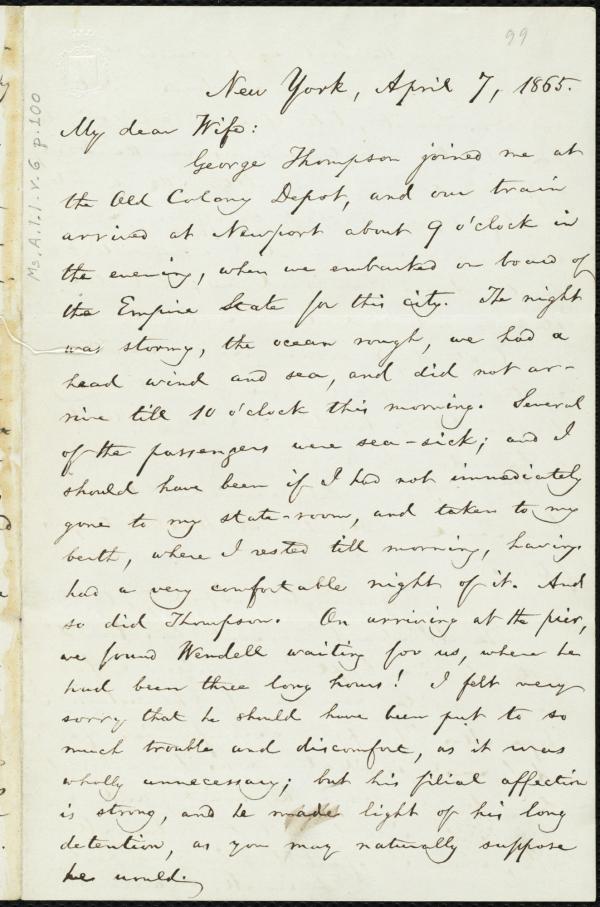 99
New York, April 7, 1865.
My dear Wife:
George Thompson joined me at
the Old Colony Depot, and our train
arrived at Newport about 9 o'clock in
the evening, when we embarked on board of
the Empire State for this city. The night
was stormy, the ocean rough, we had a
head wind and sea, and did not ar-
rive till 10 o'clock this morning. Several
of the passengers were sea-sick; and I
should have been if I had not immediately
gone to my state-room, and taken to my
berth, where I rested till morning, having
had a very comfortable night of it. And
so did Thompson. On arriving at the pier,
we found Wendell waiting for us, where he
had been three long hours! I felt very
sorry that he should have been put to so
much trouble and discomfort, as it was
wholly unnecessary; but his filial affection
is strong, and he made light of his long
detention, as you may naturally suppose
he would.
Ms. A. 1. 1. v. 6 p. 100